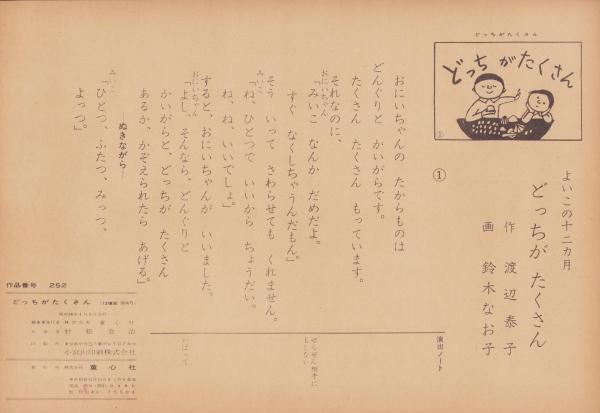 どっちがたくさん
どっちがたくさん
①
よいこの十二カ月
どっちが たくさん
作 渡辺泰子
画 鈴木なお子
①
おにいちゃんの たからものは
どんぐりと かいがらです。
たくさん たくさん もっています。
それなのに、
おにいちゃん
「みいこ なんか だめだよ。
すぐ なくしちゃうんだもん」
そう いって さわらせても くれません。
みいこ
「ね、ひとつで いいから ちょうだい。
ね、ね、いいでしょ」
すると、おにいちゃんが いいました。
おにいちゃん
「よし、そんなら、どんぐりと
かいがらと、どっちが たくさん
あるか、かぞえられたら あげる」
ぬきながら―
みいこ
「ひとつ、ふたつ、みっつ、
よっつ」
演出ノート
ぜんぜん相手に
しない
いばって
作品番号 252
どっちがたくさん
株式会社 童心社
村松金治
小宮山印刷株式会社
株式会社 童心社